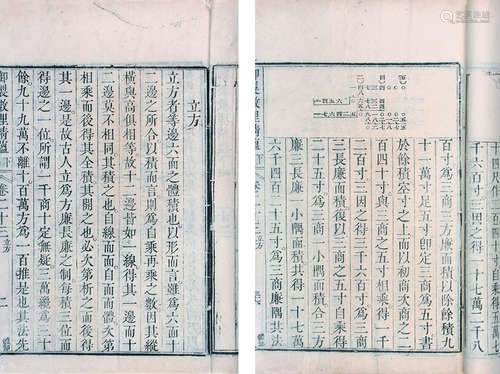 百寸為三商三方廉面積以除餘積九
十一萬寸足五寸卽定三商為五寸書
於餘積定寸之上而以初商次商之二
百四十寸與三商之五寸相乘得一千
二百寸三因之得三千六百寸為三商
三長廉面積復以三商之五寸自乘得
二十五寸為三商一小隅面積合三方
廉三長廉一小隅面積共得一十七萬
六千四百二十五寸為三商廉隅共法
御製數理精蘊 下 卷二十三 立方
千六百寸三因之得一十七萬二千八
立方
立方者等邊六面之體積也以形而言雖為六面十
二邊之所合以積而言則為自乘再乘之數因其縱
橫與高俱相等故十二邊皆如一線得其一邊而十
二邊莫不相同其積之也自線而面自面而體次第
相乘而後得其全積其開之也必次第析之而後得
其一邊是故古人立為方廉長廉之制每積三位而
得邊之一位所謂一千商十定無疑三萬纔為三十
餘九十九萬不離十百萬方為一百推是也其法先
御製數理精蘊 下 卷二十三 立方